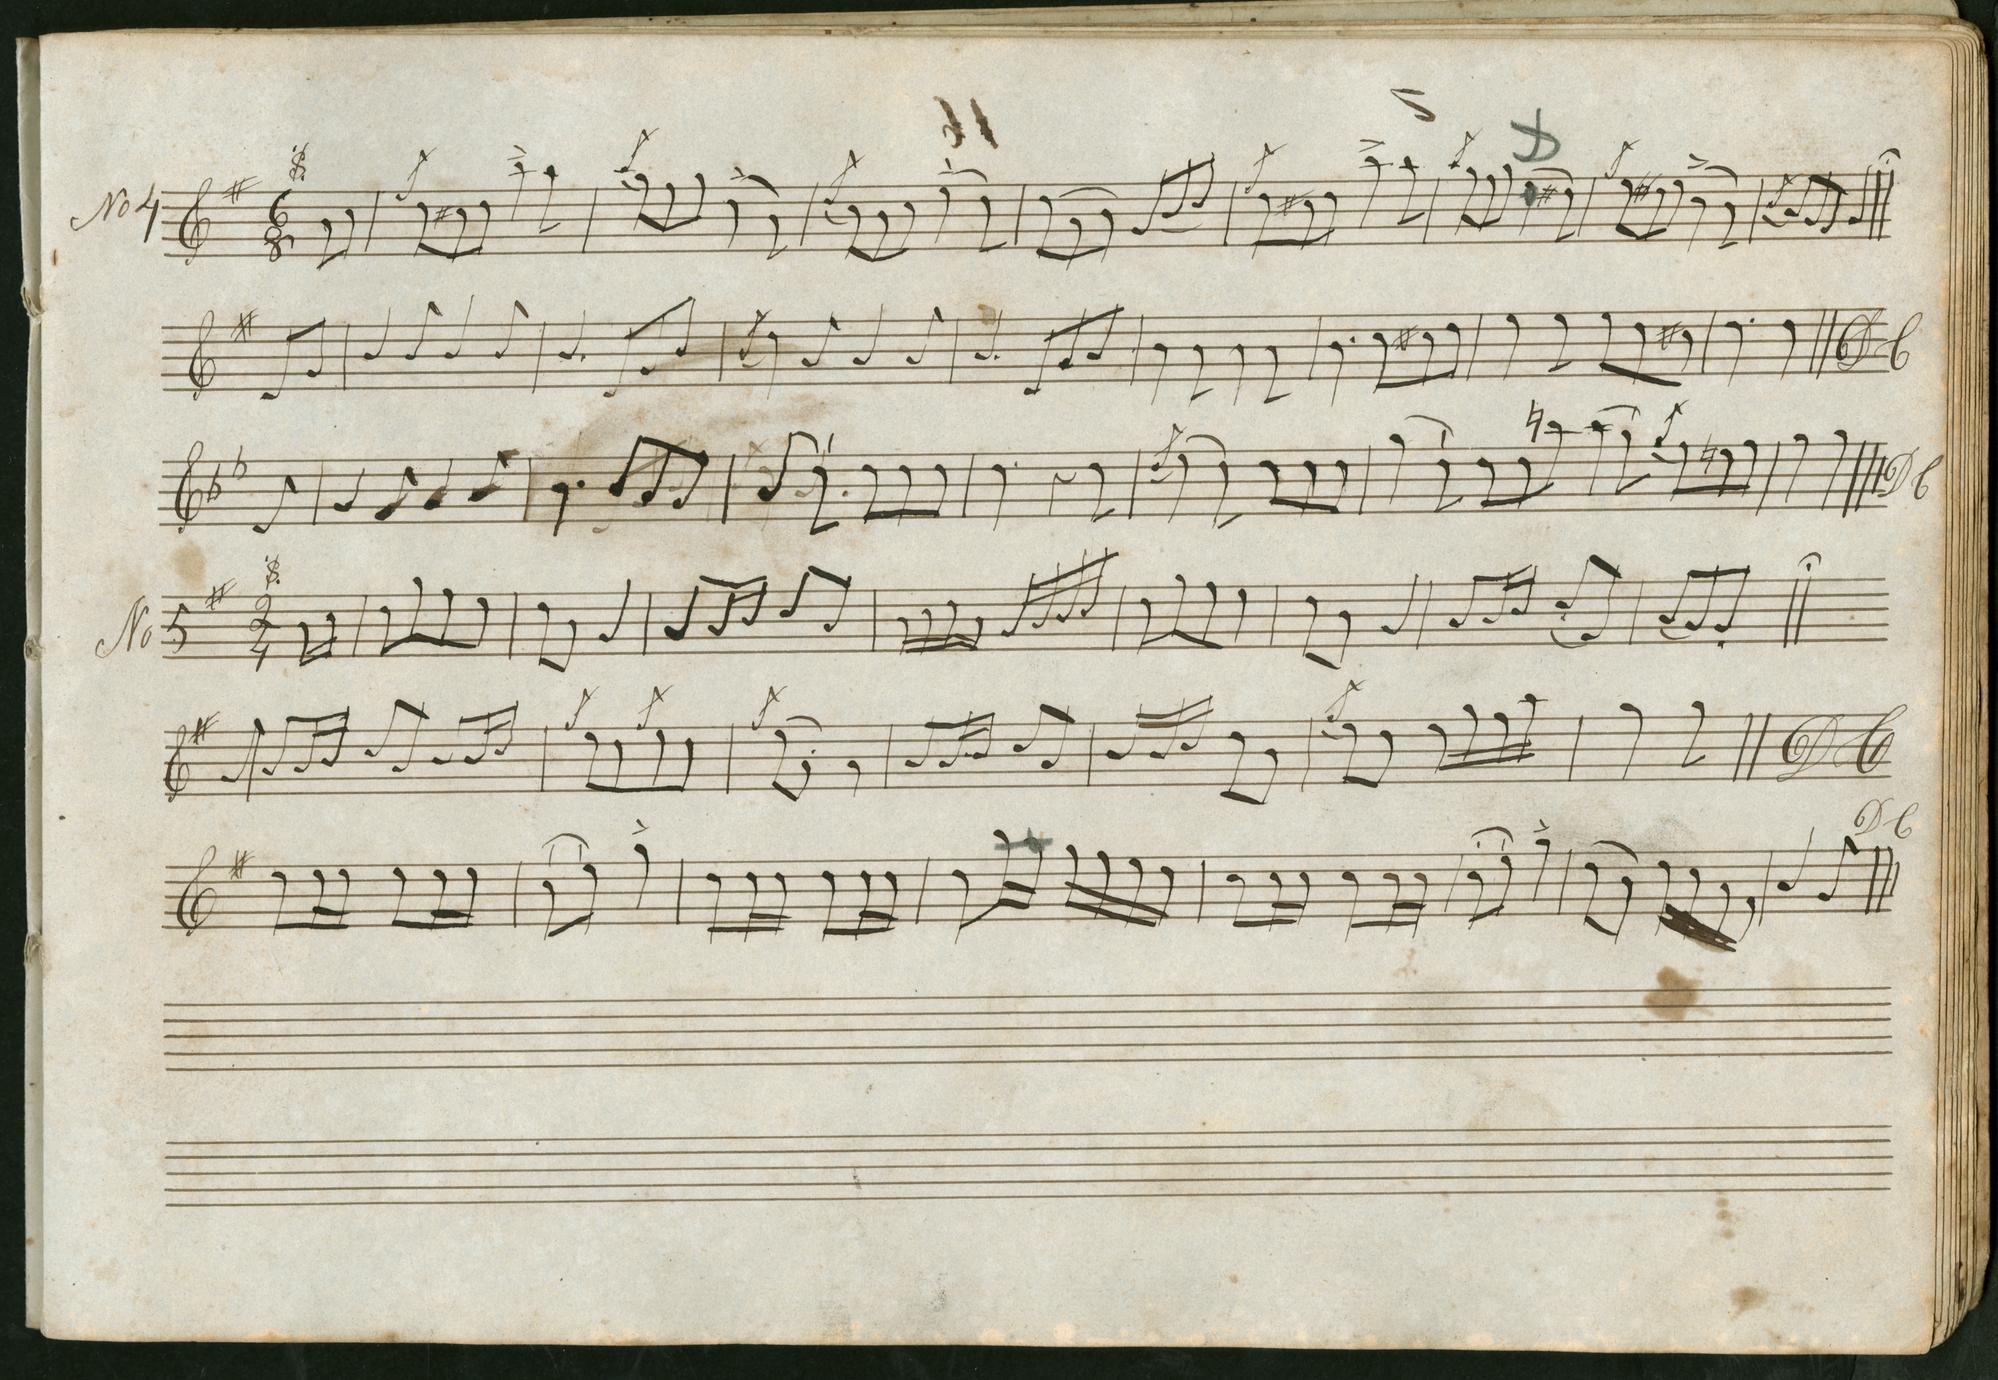 No 4
6
8
D
D C
D C
No 5
2
4
D C
D C